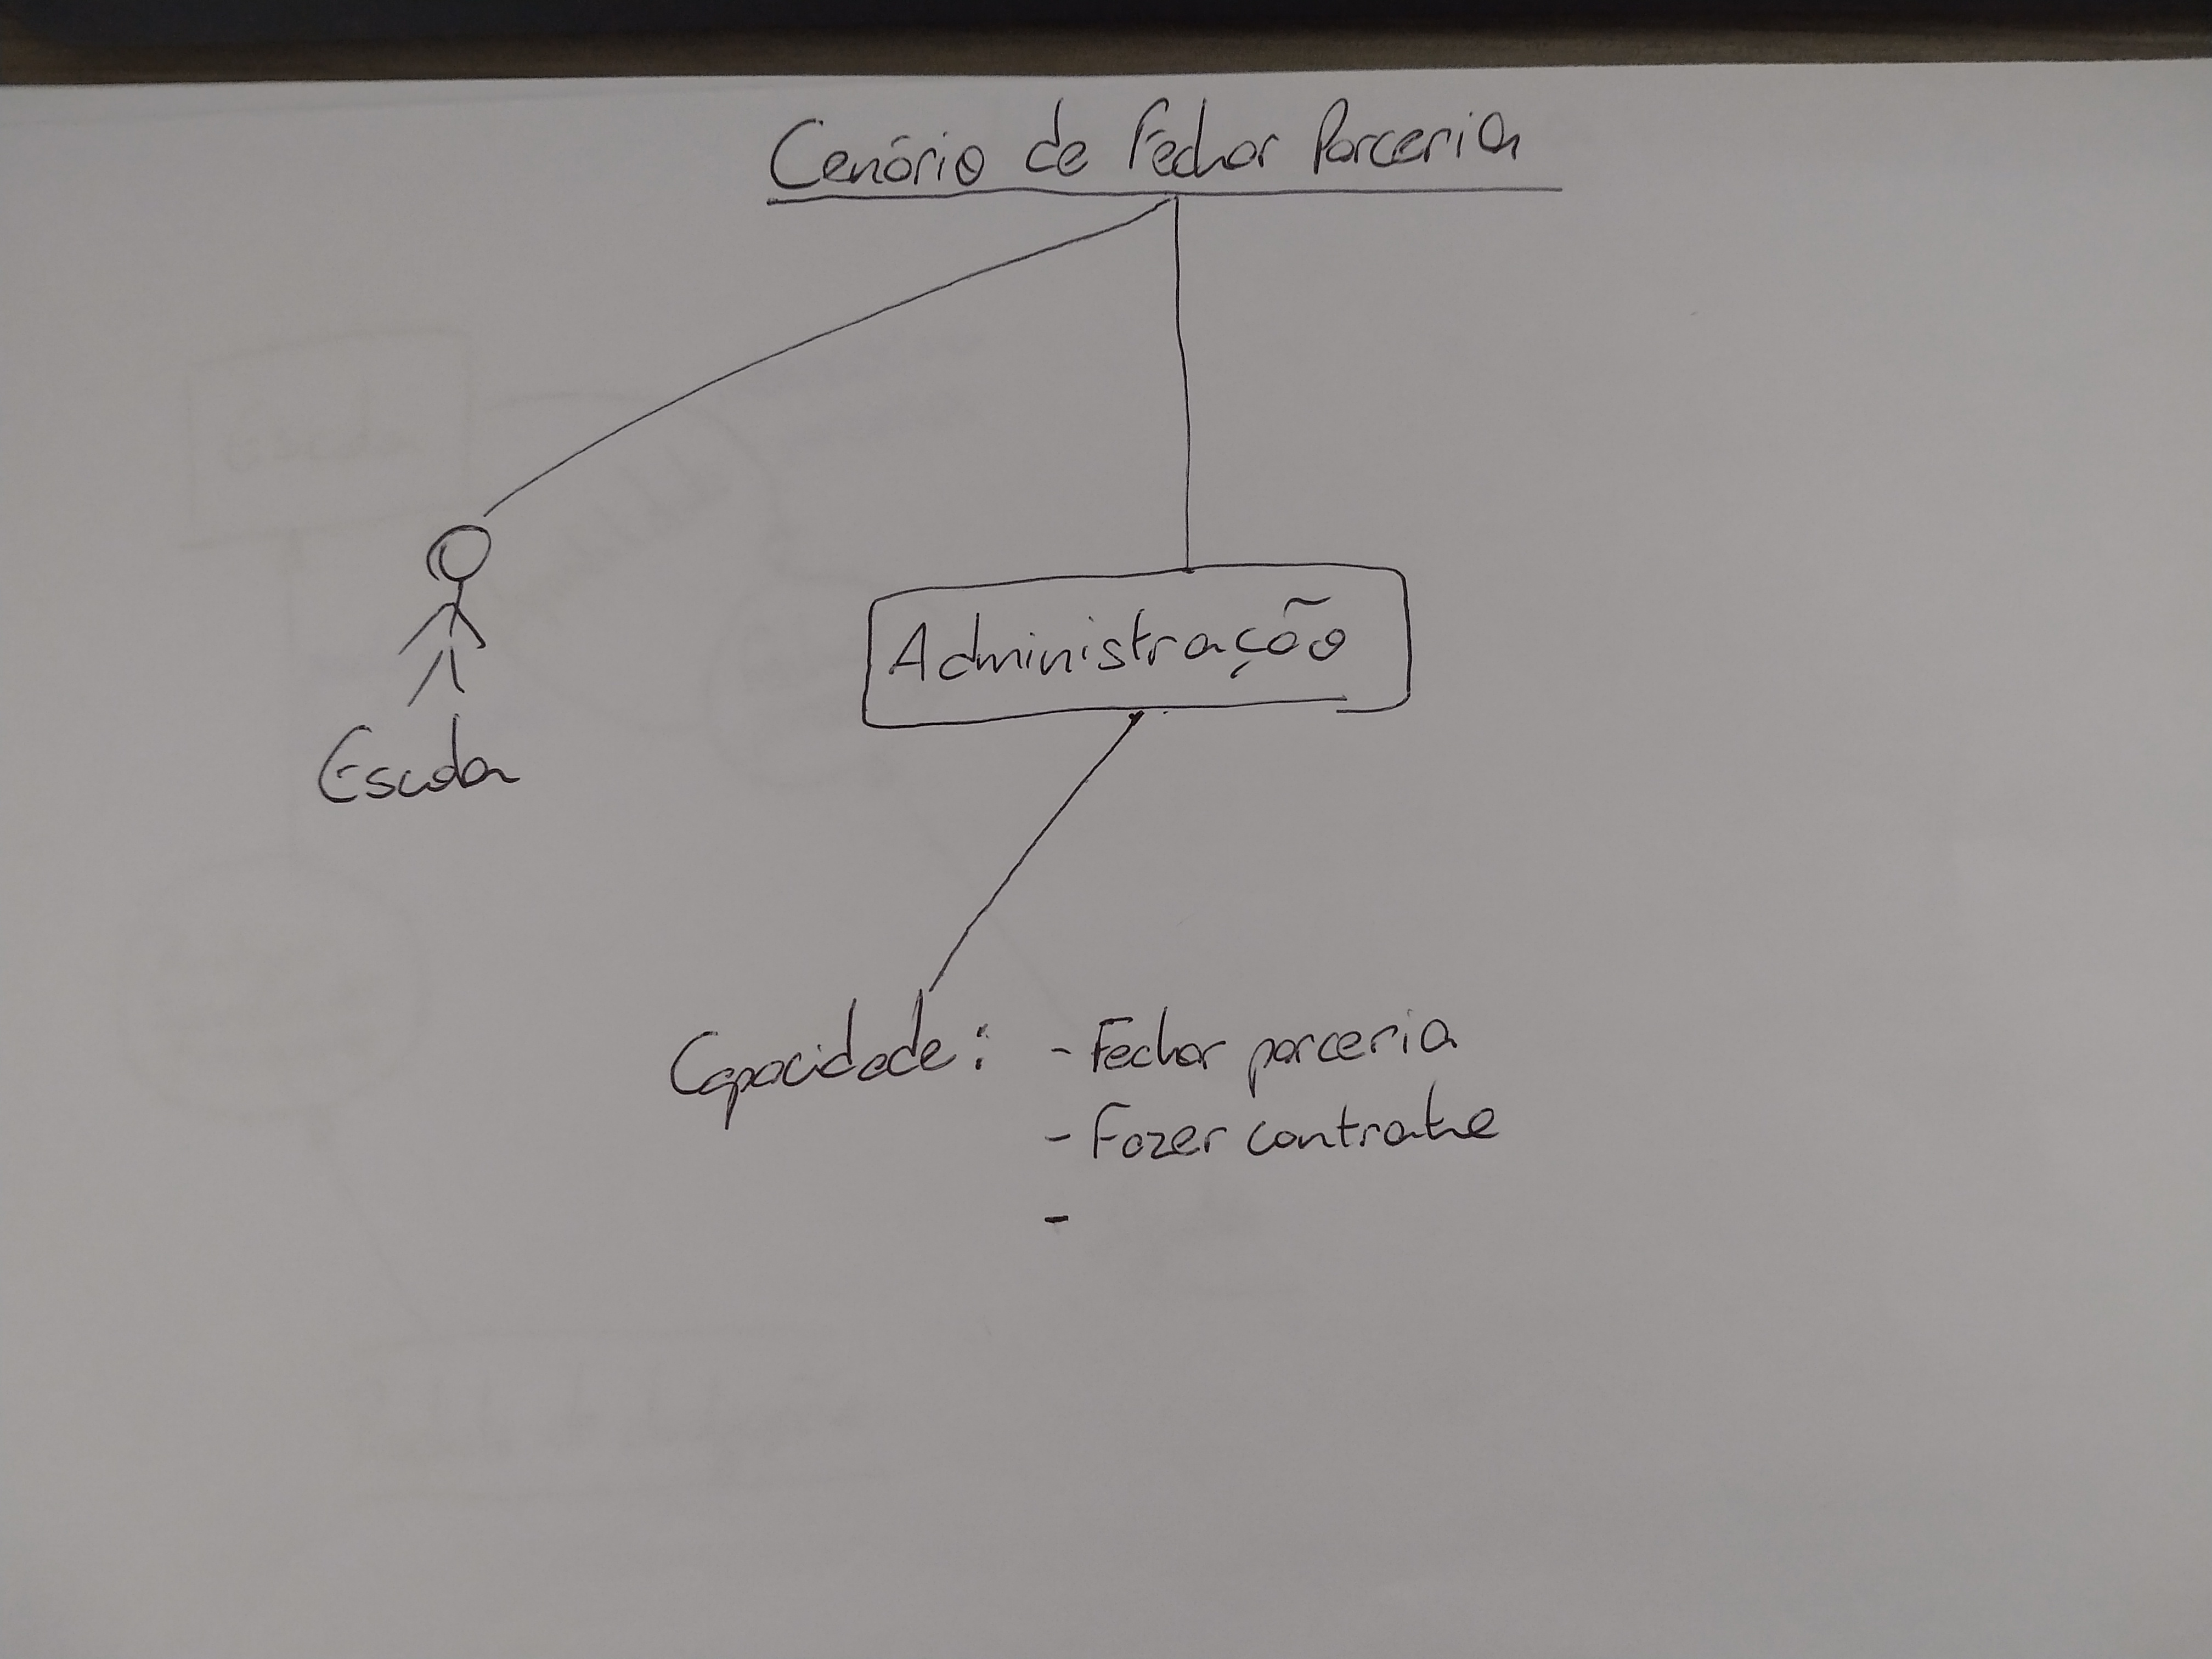 Cenário de Fechar Parceria
Escola
Administração
Capacidade: - Fechar parceria
- Fazer contrato
-